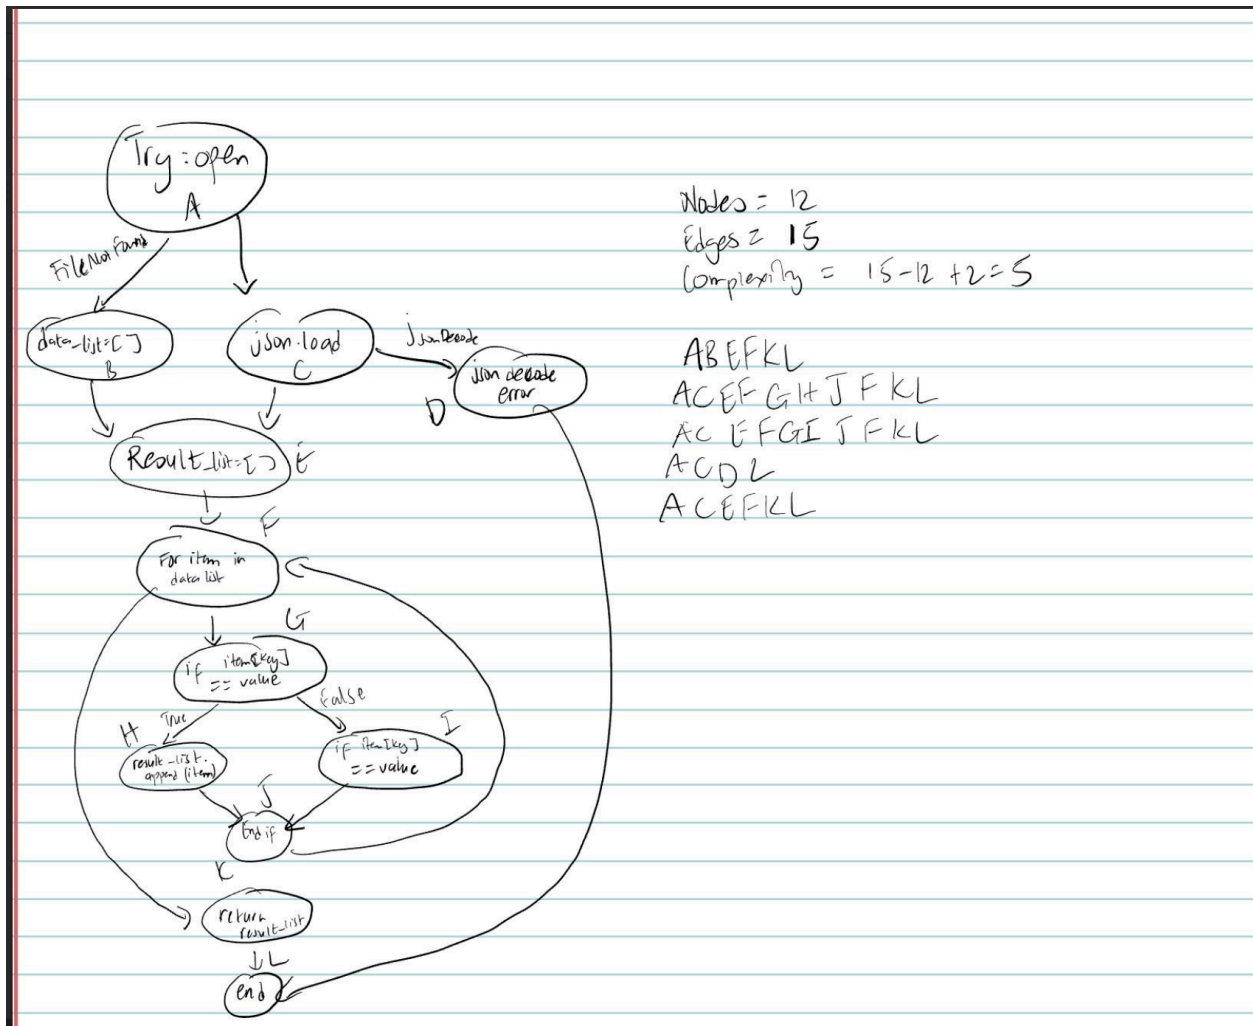 Try: open
A
FileNotFound
data_list=[]
B
json.load
C
jsonDecode
json decode
error
D
Result_list=[]
E
F
For item in
data list
G
if item[key]
== value
True
False
H
result_list.
append (item)
I
if item[key]
== value
J
End if
K
return
result_list
L
end
Nodes = 12
Edges = 15
Complexity = 15-12 +2=5
ABEFKL
ACEFGHJFKL
ACEFGIJFKL
ACDL
ACEFKL